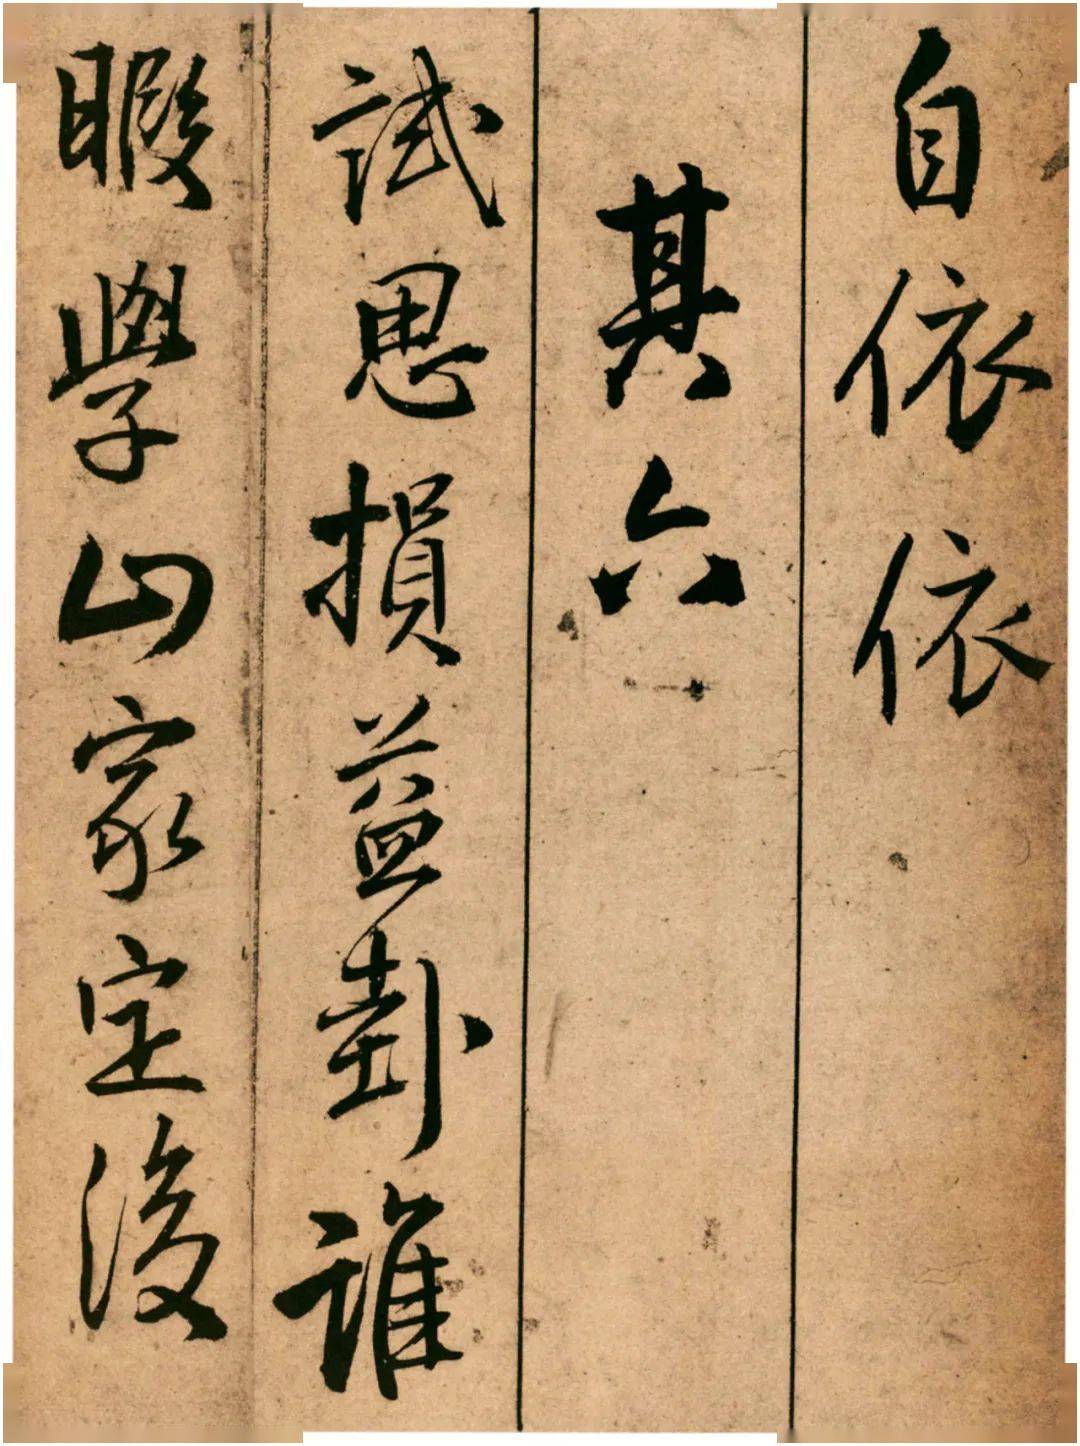 自依依
其六
試思損益卦誰
暇學山家定後